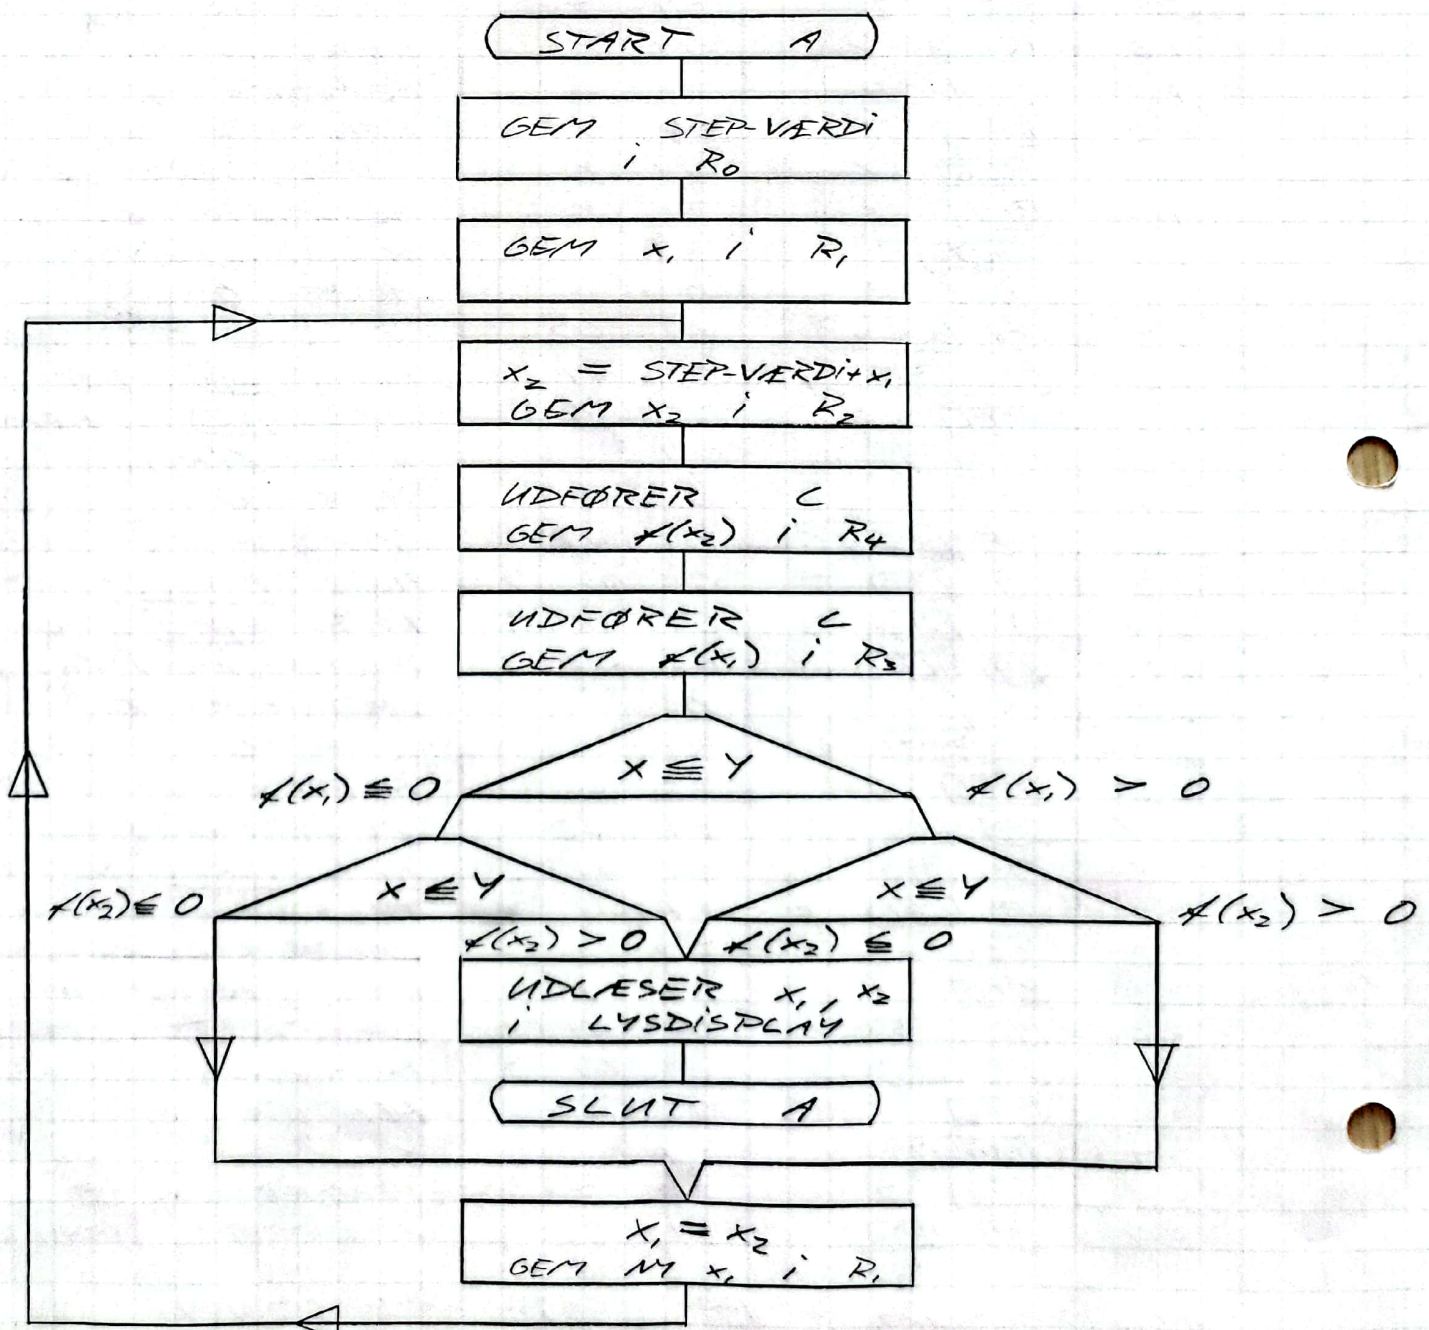 START A
GEM STEP-VÆRDi
i R₀
GEM x₁ i R₁
x₂ = STEP-VÆRDi+x₁
GEM x₂ i R₂
UDFØRER C
GEM f(x₂) i R₄
UDFØRER C
GEM f(x₁) i R₃
f(x₁) ≦ 0
X ≦ Y
f(x₁) > 0
f(x₂) ≦ 0
X ≦ Y
X ≦ Y
f(x₂) > 0
f(x₂) > 0
f(x₂) ≦ 0
UDLÆSER x₁, x₂
i LYSDiSPLAY
SLUT A
x₁ = x₂
GEM NY x₁ i R₁